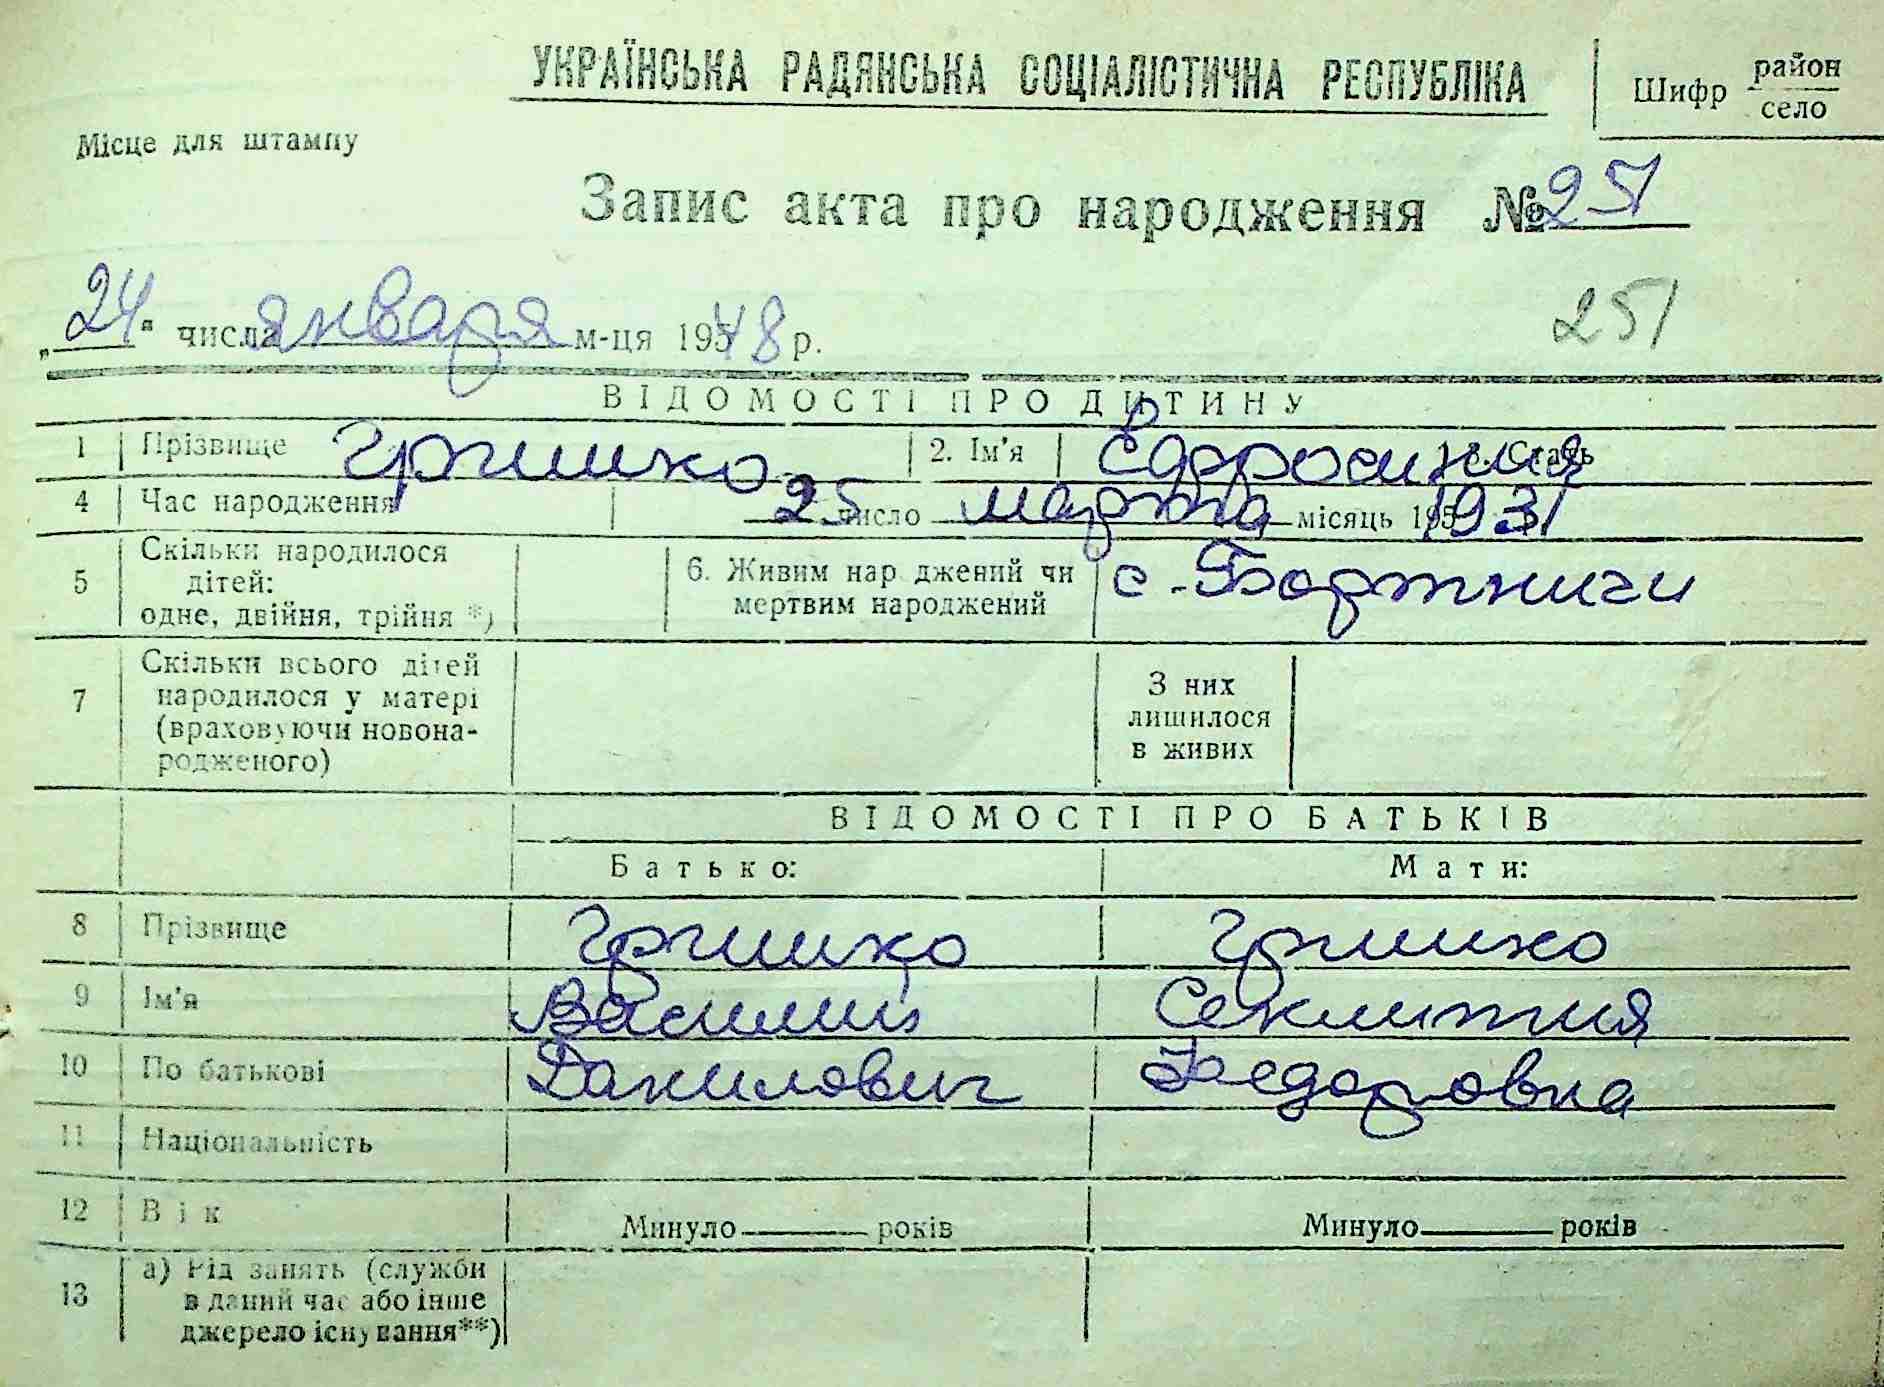 УКРАЇНСЬКА РАДЯНСЬКА СОЦІАЛІСТИЧНА РЕСПУБЛІКА
Шифр район
село
Місце для штампу
Запис акта про народження № 251
251
„24" числа января м-ця 195 48 р.
ВІДОМОСТІ ПРО ДИТИНУ
1 Прізвище Гришко 2. Ім'я Ефросиния 3. Стать
4 Час народження 25 число марта місяць 195 1931
5 Скільки народилося
дітей:
одне, двійня, трійня *)
6. Живим нар дженийй чи
мертвим народжений
с. Бортничи
7 Скільки всього дітей
народилося у матері
(враховуючи новона-
родженого)
З них
лишилося
в живих
ВІДОМОСТІ ПРО БАТЬКІВ
Батько: Мати:
8 Прізвище Гришко Гришко
9 Ім'я Василий Секлития
10 По батькові Данилович Федоровна
11 Національність
12 Вік Минуло років Минуло років
13 а) Рід занять (служби
в даний час або інше
джерело існування**)